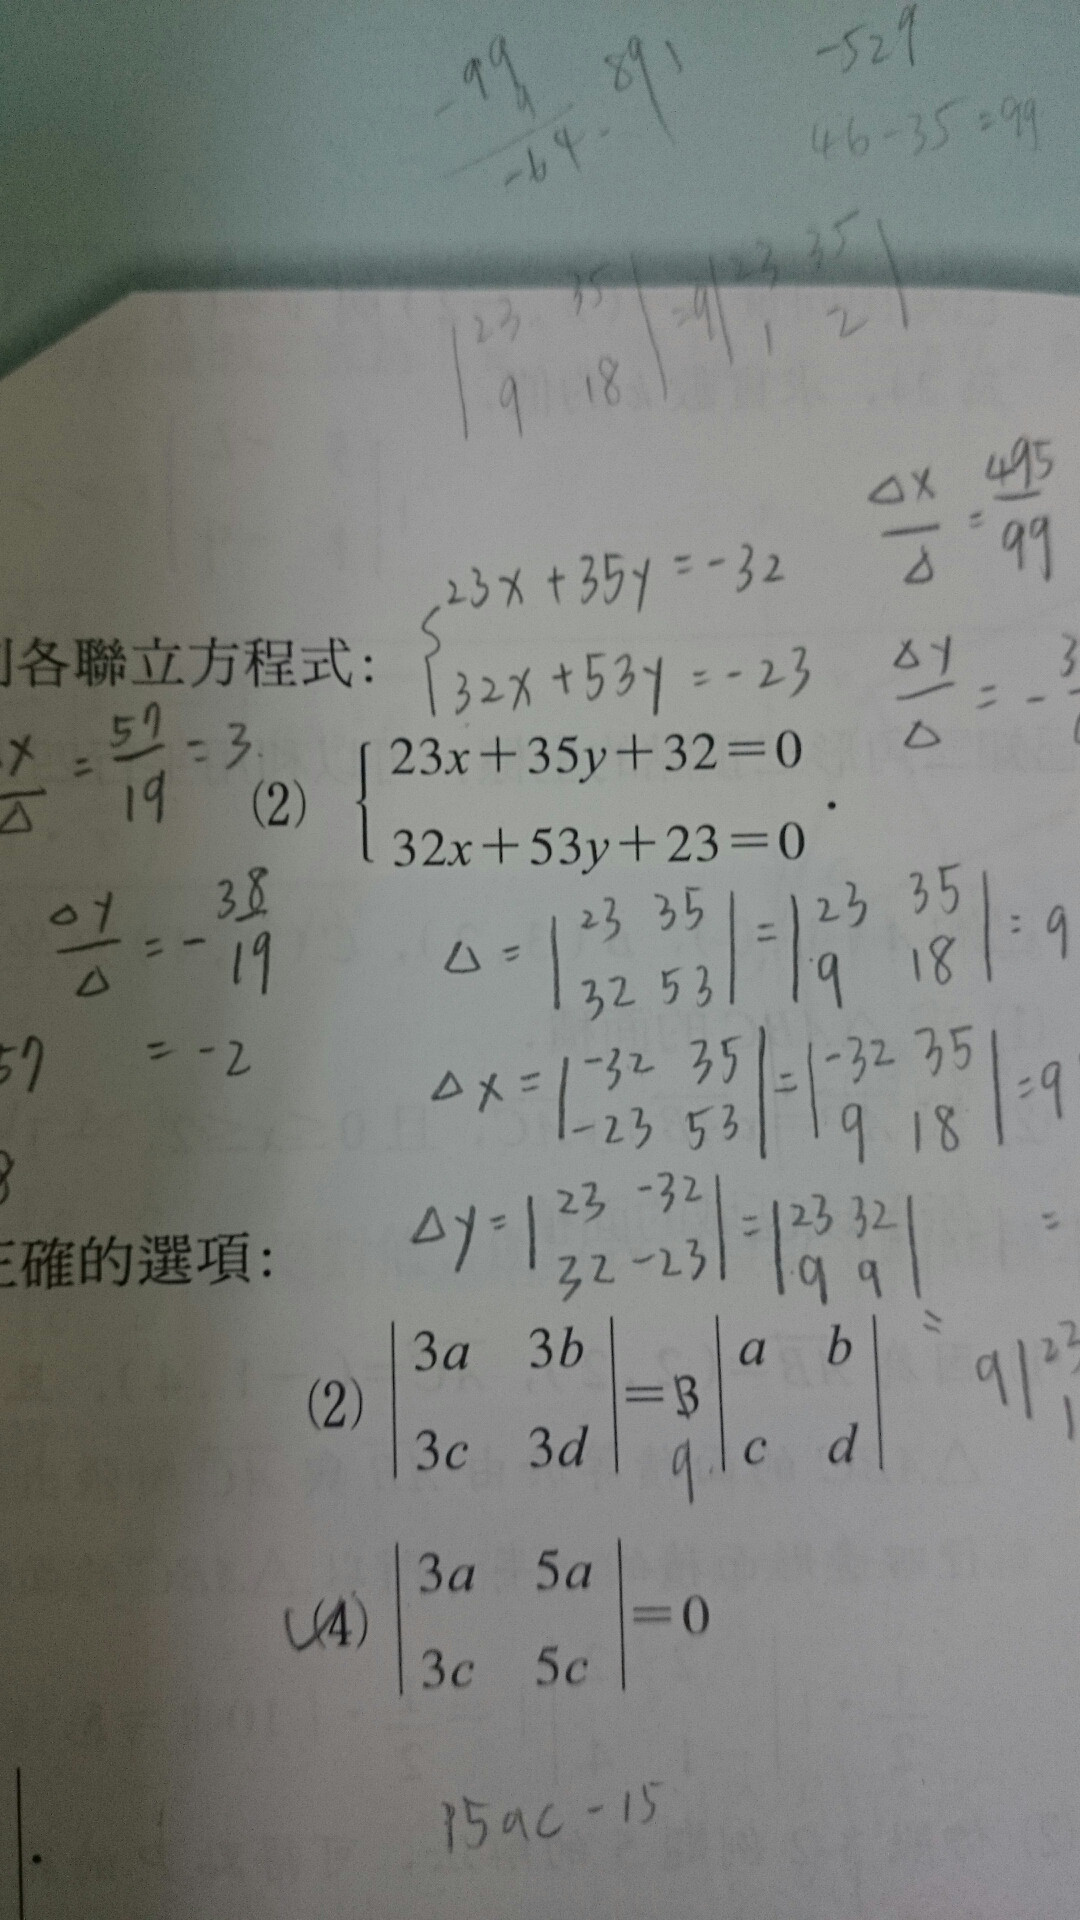 -529
46-35=99
|23 35
9 18| =9|23 35
1 2|
Δx/Δ = 495/99
{23x+35y=-32
32x+53y=-23
Δy/Δ = -
各聯立方程式:
x/Δ = 57/19 = 3
(2) {23x+35y+32=0
32x+53y+23=0 .
Δy/Δ = -38/19
= -2
57
Δ = |23 35
32 53| = |23 35
9 18| = 9
Δx = |-32 35
-23 53| = |-32 35
9 18| = 9
Δy = |23 -32
32 -23| = |23 32
9 9| =
正確的選項:
(2) |3a 3b
3c 3d| = 3 |a b
c d|
9
= 9|23
1
(4) |3a 5a
3c 5c| = 0
15ac-15